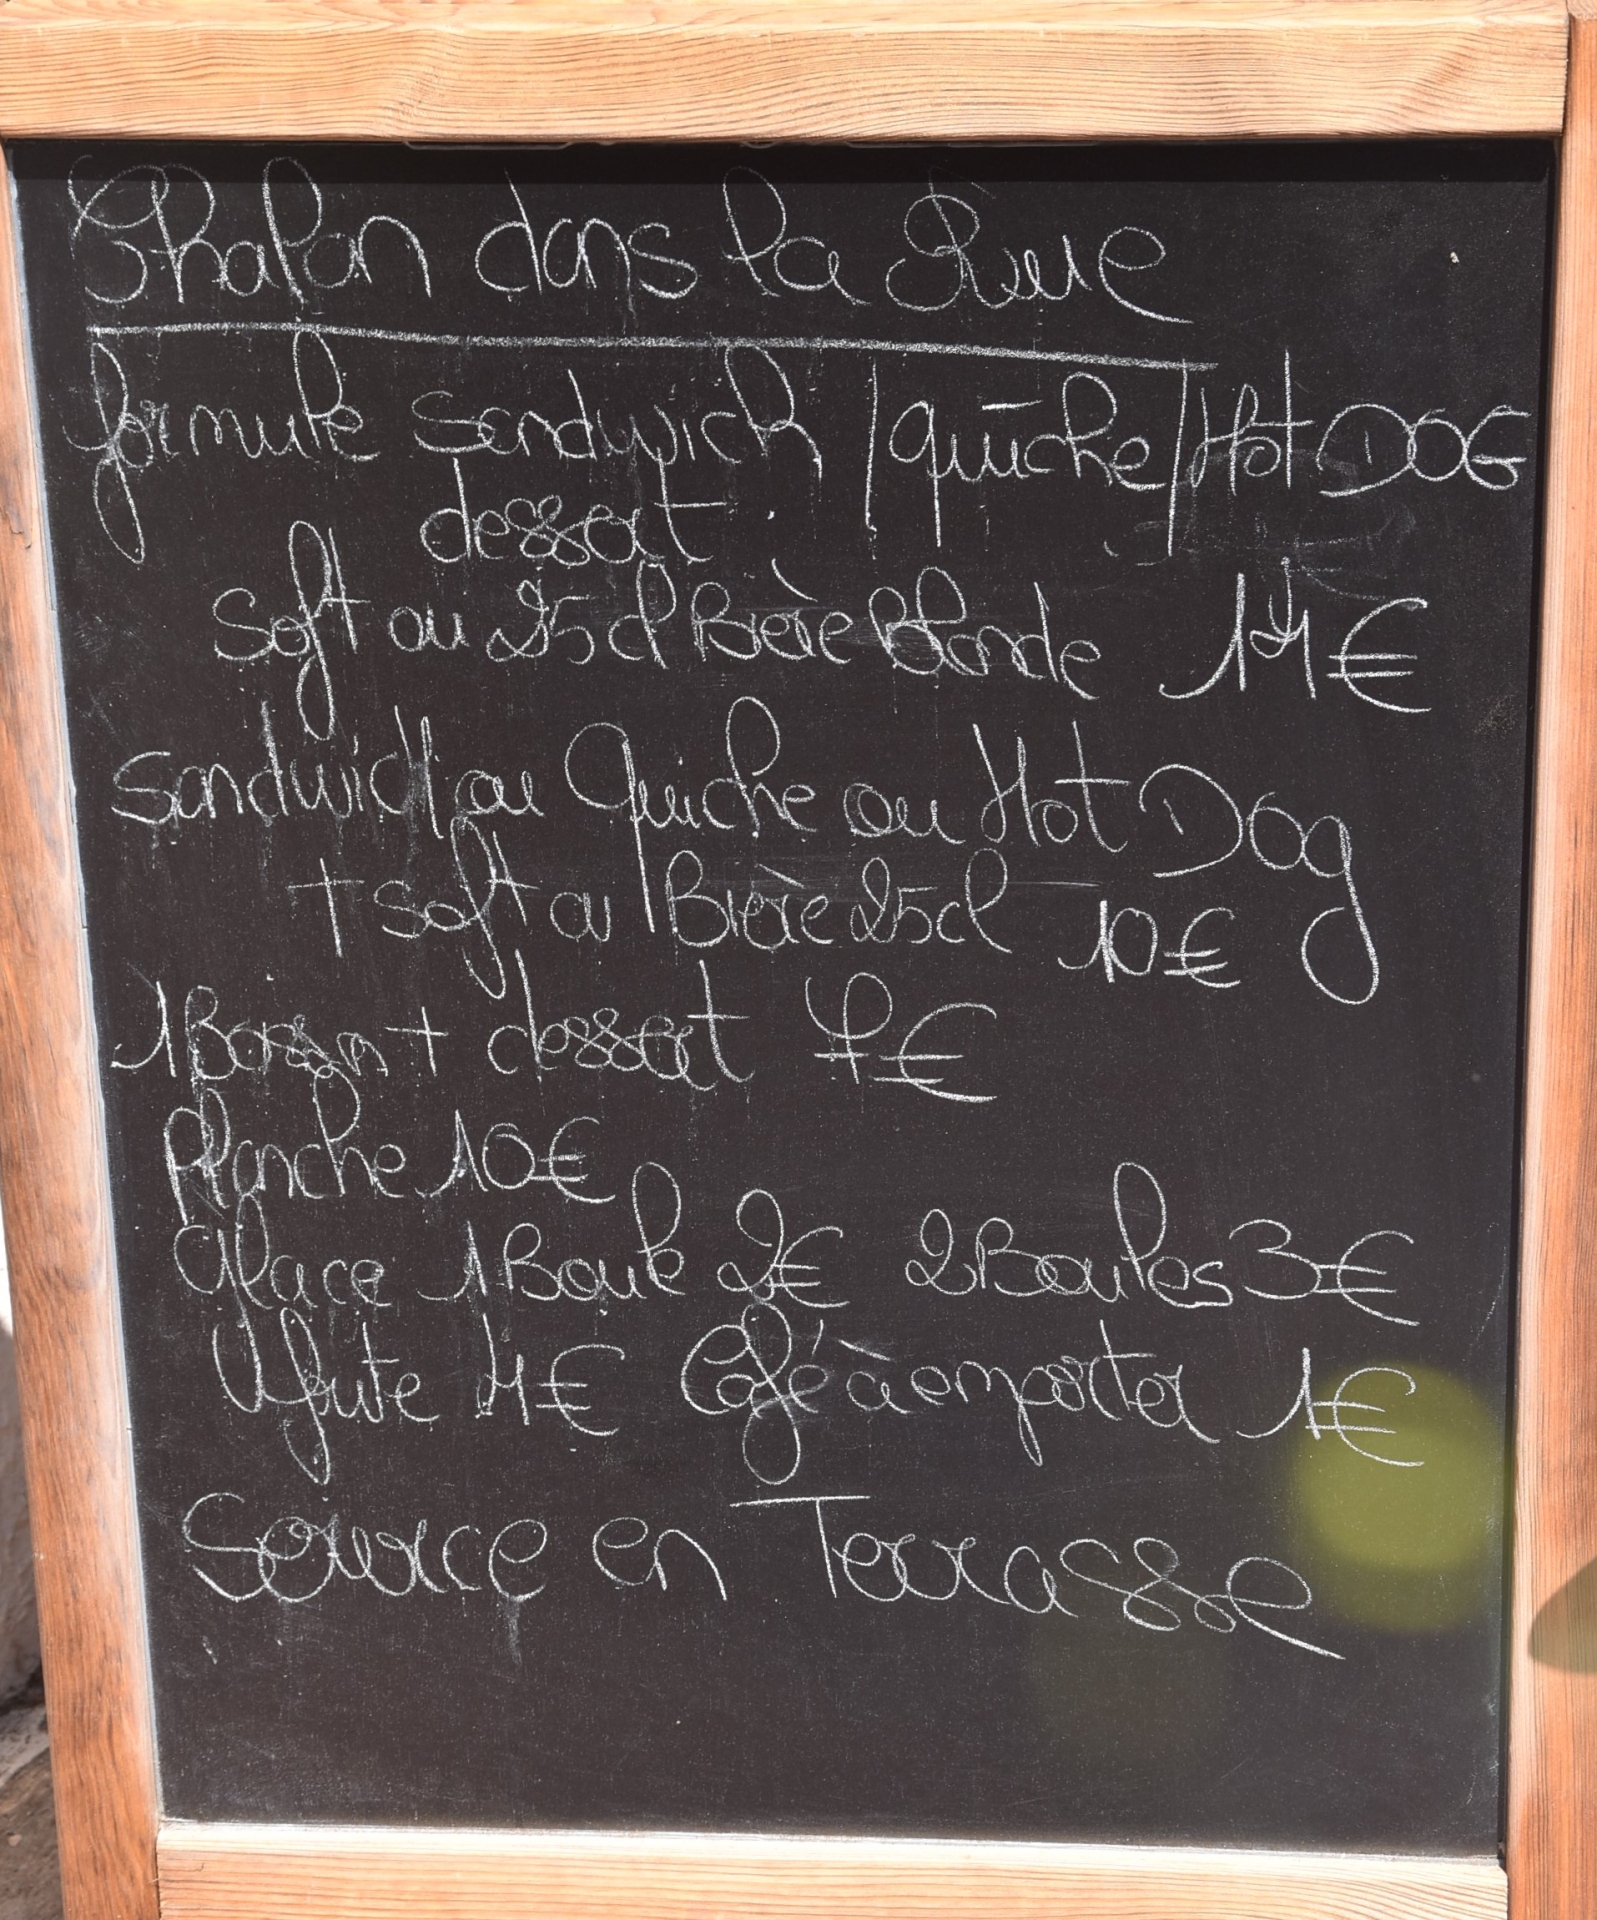 Chalon dans la Rue
formule sandwich / quiche / Hot DOG
dessert
Soft ou 25cl Bière Blonde 14€
Sandwich ou Quiche ou Hot Dog
+ soft ou Bière 25cl 10€
1 Boisson + dessert 7€
Planche 10€
Glace 1 Boule 2€ 2 Boules 3€
4€ Café à emporter 1€
Source en Terrasse